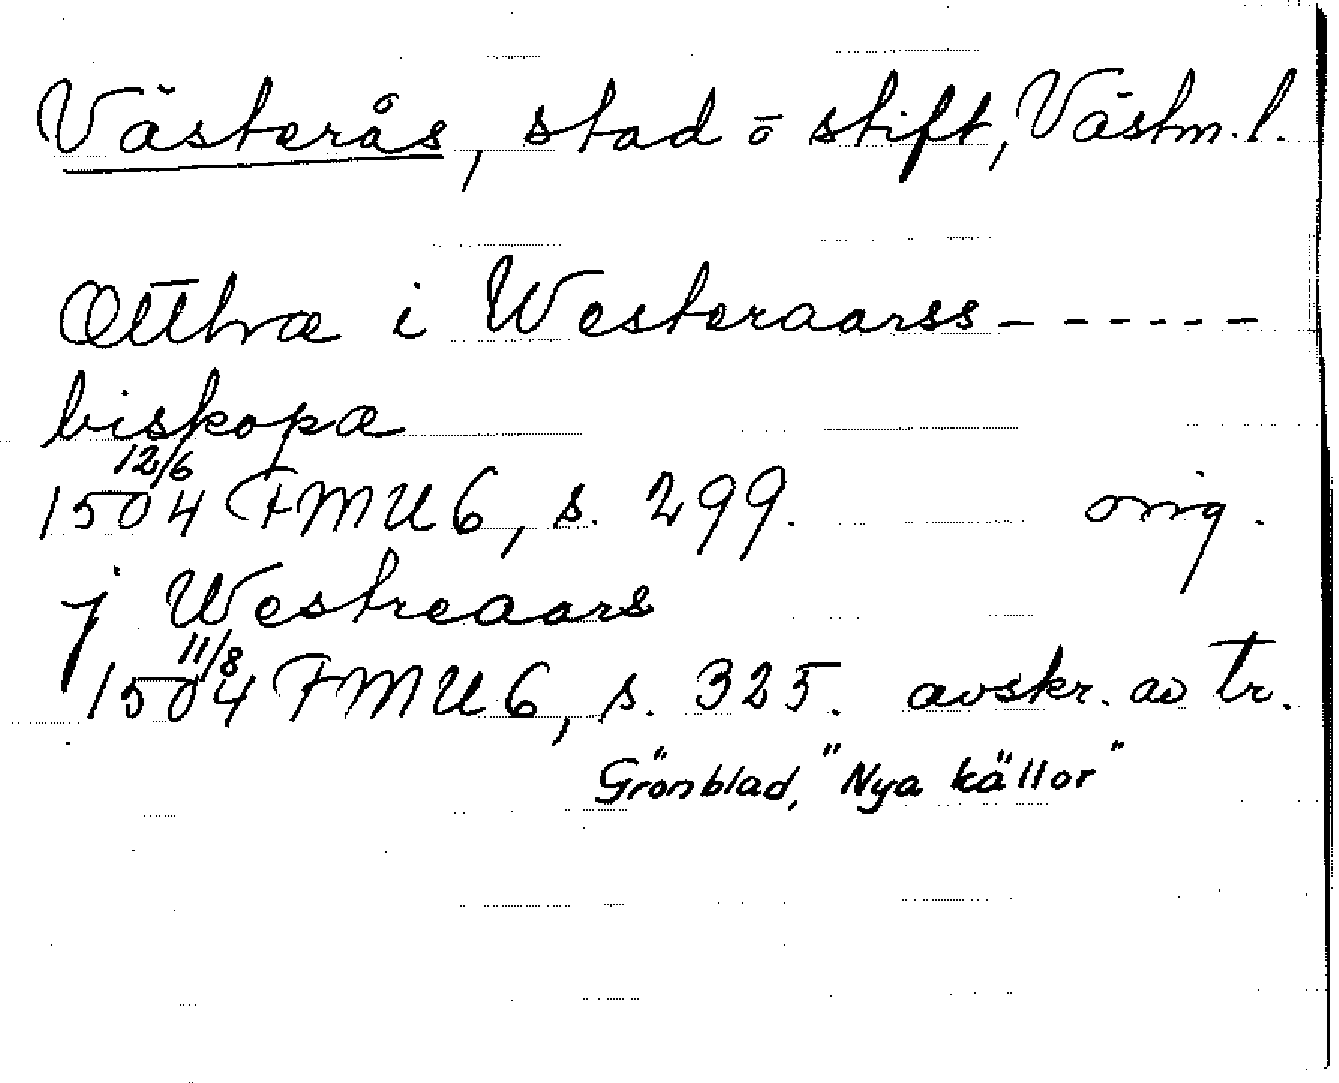 Västerås, stad o stift, Västm. l.
Otthræ i Westeraarss - - - - - -
biskopæ
12/6
1504 FMU 6, s. 299. orig.
j Westreaars
11/8
1504 FMU 6, s. 325. avskr. av tr.
Grönblad, "Nya källor"